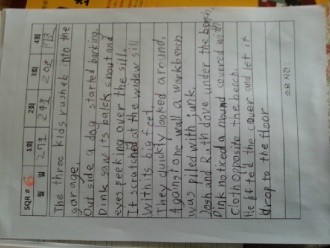 SQR # 6
1회 2회 3회 4회
월 일
The three kids rushed into the
garage.
Out side a dog started barking.
Dink saw its balck snout and
eyes peeking over the sill.
It scratched at the widow sill
With its big feet.
They quickly looked around.
Agoingtone wall a workbench
was piled with junk.
Josh and Ruth dove under the bench.
Dink noticed a mound covered with
Cloth opposite the bench.
He fell the cover and let it
drop to the floor
소요 시간